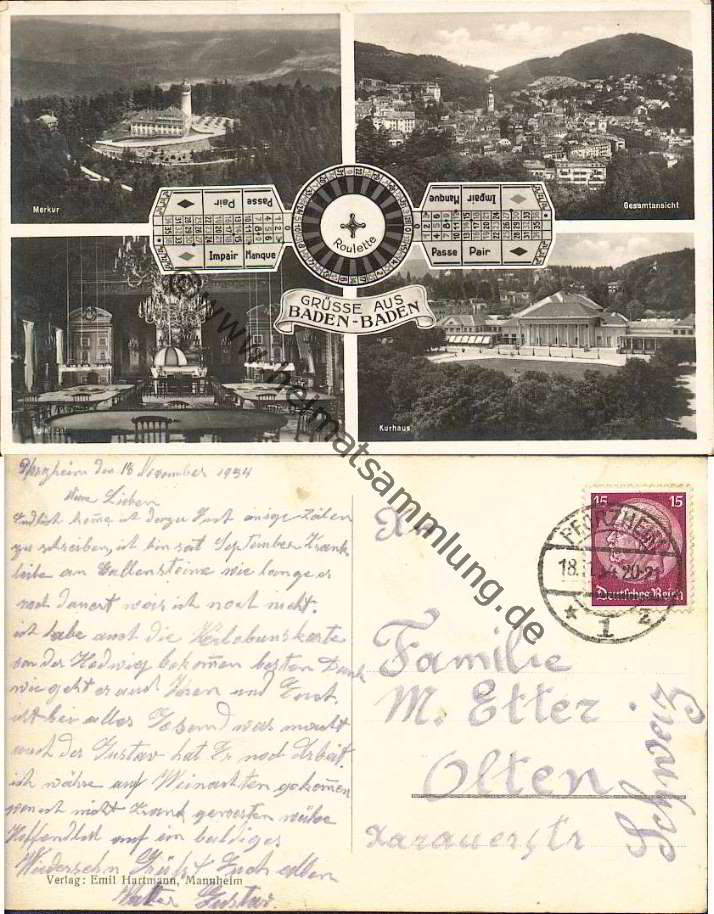 Merkur
Gesamtansicht
Passe Pair
Impair Manque
Manque Impair
Passe Pair
Roulette
GRÜSSE AUS
BADEN-BADEN
Kurhaus
© www.heimatsammlung.de
Pforzheim den 18 November 1934
Meine Lieben
Endlich kome ich dazu Euch einige Zeilen
zu schreiben, ich bin seit September Krank
leide an Gallensteine wie lange es
noch dauert weis ich noch nicht.
ich habe auch die Verlobunskarte
von der Hedwig bekomen besten Dank
wie geht es auch Ihnen und Ernst
ist bei alles Gesund was macht
auch der Gustav hat Er noch Arbeit.
ich währe auf Weinachten gekomen
wen ich nicht Krank gewesen wäre
Hoffendlich auf ein baldiges
Wiedersehn Grüßt Euch allen
Vatter Gustav.
Verlag: Emil Hartmann, Mannheim
15 15
Deutsches Reich
PFORZHEIM
18. 20-21
* 1 z
Familie
M. Etter.
Olten
Aarauerstr
Schweiz